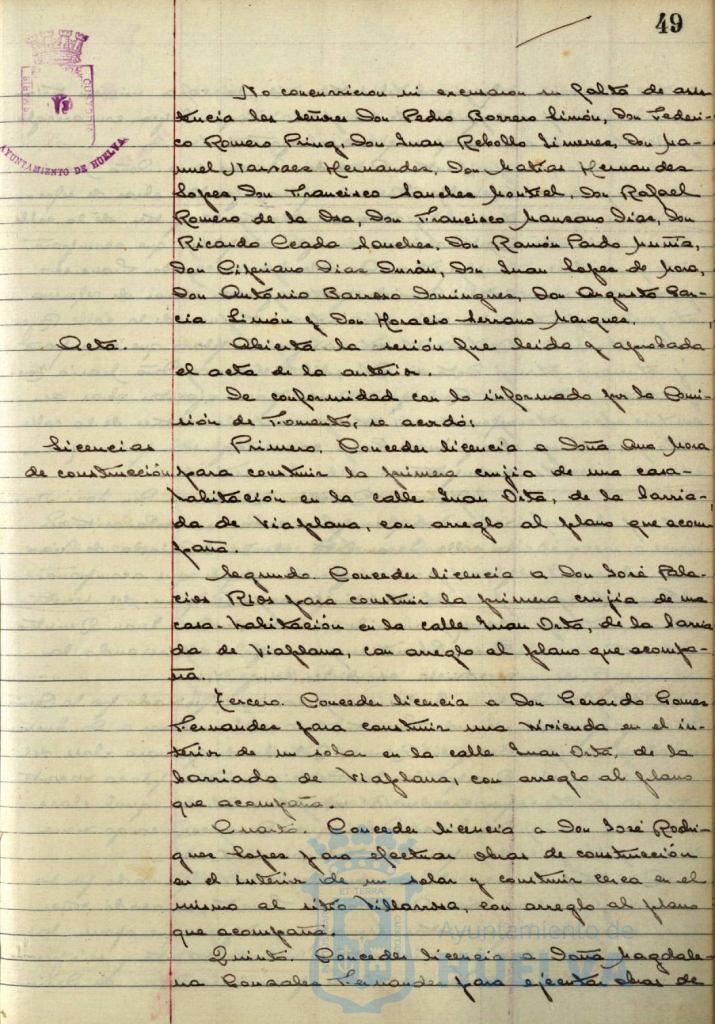 49
AYUNTAMIENTO DE HUELVA
No concurrieron ni excusaron su falta de asis-
tencia los señores Don Pedro Borrero Limón, Don Federi-
co Romero Prinz, Don Juan Rebollo Jimenez, Don Ma-
nuel Narvaez Hernandez, Don Matias Hernandez
Lopez, Don Francisco Sanchez Montiel, Don Rafael
Romero de la Osa, Don Francisco Manzano Dias, Don
Ricardo Ceada Sanchez, Don Ramón Pardo Muñiz,
Don Cipriano Dias Durán, Don Juan Lopez de Mora,
Don Antonio Barroso Dominguez, Don Augusto Gar-
cia Limón y Don Horacio Serrano Marquez.
Acta.
Abierta la sesión fue leida y aprobada
el acta de la anterior.
De conformidad con lo informado por la Comi-
sión de Fomento, se acordó:
Licencias
de construcción
Primero. Conceder licencia a Doña Ana Mora
para construir la primera crujia de una casa-
habitación en la calle Juan Orta, de la barria-
da de Viaplana, con arreglo al plano que acom-
paña.
Segundo. Conceder licencia a Don José Pala-
cios Rios para construir la primera crujia de una
casa-habitación en la calle Juan Orta, de la barria
da de Viaplana, con arreglo al plano que acompa-
ña.
Tercero. Conceder licencia a Don Gerardo Gomez
Fernandez para construir una vivienda en el in-
terior de un solar en la calle Juan Orta, de la
barriada de Viaplana, con arreglo al plano
que acompaña.
Cuarto. Conceder licencia a Don José Rodri-
guez Lopez para efectuar obras de construcción
en el interior de un solar y construir cerca en el
mismo al sitio Villarrosa, con arreglo al plano
que acompaña.
Quinto. Conceder licencia a Doña Magdale-
na Gonzalez Fernandez para ejecutar obras de
Ayuntamiento de
HUELVA